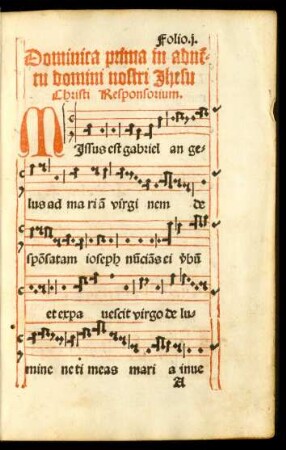 Folio.j.
Dominica prima in aduē-
tu domini nostri Jhesu
Christi Responsorium.
MIssus est gabriel an ge-
lus ad ma ri ā virgi nem de
spōsatam ioseph nūciās ei
et expa uescit virgo de lu-
mine ne ti meas mari a inue
A